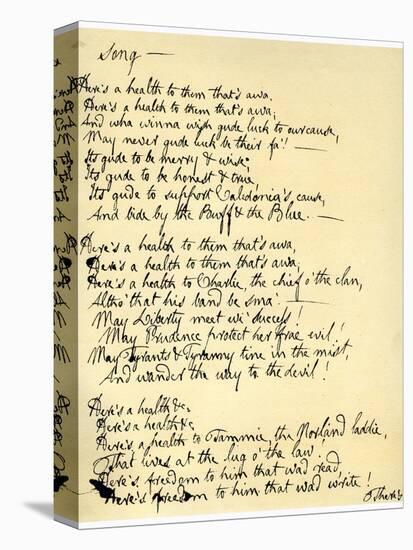 Song —
Here's a health to them that's awa,
Here's a health to them that's awa;
And wha winna wish gude luck to our cause,
May never gude luck be their fa'! —
Its gude to be merry & wise;
Its gude to be honest & true,
Its gude to support Caledonia's cause,
And bide by the Buff & the Blue. —
Here's a health to them that's awa,
Here's a health to them that's awa;
Here's a health to Charlie, the chief o' the clan,
Altho' that his band be sma. —
May Liberty meet wi' success!
May Prudence protect her frae evil!
May Tyrants & Tyranny tine in the mist,
And wander the way to the devil!
Here's a health &c.
Here's a health &c
Here's a health to Tammie, the Norland laddie,
That lives at the lug o' the law.
Here's freedom to him that wad read,
Here's freedom to him that wad write!